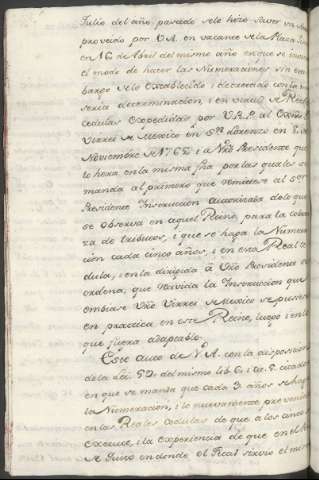 Julio del año pasado se le hizo saver un
proveido por V.A. en vacante de la Plaza
en 16 de Abril del mismo año en que se
el modo de hacer las Numeraciones sin em
bargo de lo establecido, i decretado con la
seria determinacion, i en virtud de Reales
cedulas Expedidas por V.R.P. al
Virrei de Mexico en Sn. Lorenzo en
Noviembre de 1762 i a Vro. Presidente que
lo hera en la misma fha por las quales se
manda al primero que remitiese al Sor.
Presidente Instruccion autorizada de lo que
se observa en aquel Reino, para la cobran
za de tributos, i que se haga la Numera
cion cada cinco años, i en esta Real Ce
dula, i en la dirigida à Vro Presidente se
ordena, que recivida la Instruccion que
embiase Vro Virrei de Mexico se pusiera
en practica en este Reino, luego i en lo
que fuera adaptable
Este auto de V.A. con la disposicion
de la Lei 52 del mismo lib. 6. i tit. 5. citados
en que se manda que cada 3 años se haga
la Numeracion, i lo nuevamente prevenido
en las Reales cedulas de que a los cinco se
execute, i la experiencia de que en el
de Quito en donde el Fiscal sirvio el mismo